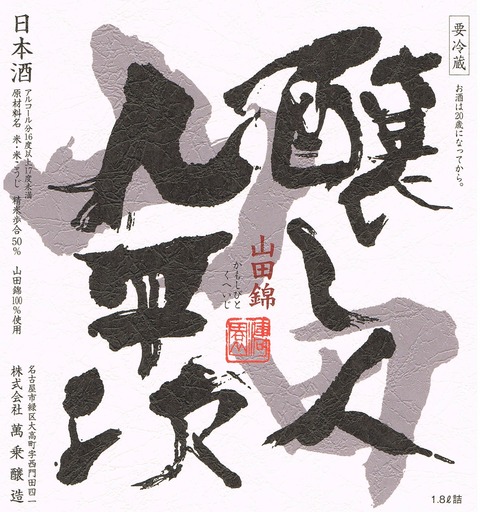 要冷蔵
お酒は20歳になってから。
醸し人
九平次
山田錦
かもしびと
くへいじ
日本酒
アルコール分16度以上17度未満
原材料名 米・米こうじ 精米歩合50% 山田錦100%使用
名古屋市緑区大高町字西門田四一
株式会社 萬乗醸造
1.8ℓ詰